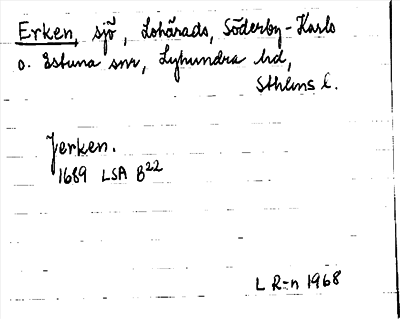 Erken, sjö, Lohärads, Söderby-Karls
o. Estuna snr, Lyhundra hd,
Sthlms l.
Jerken.
1689 LSA B22
L R-n 1968